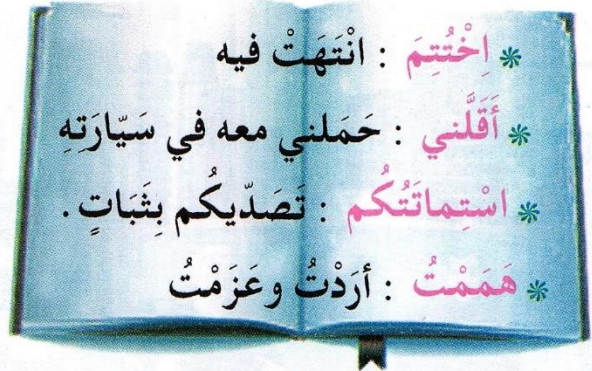 ❋ اِخْتُتِمَ : انْتَهَتْ فيه
❋ أَقَلَّني : حَمَلني معه في سَيّارَتِهِ
❋ اسْتِماتَتُكُم : تَصَدّيكُم بِثَبَاتٍ .
❋ هَمَمْتُ : أرَدْتُ وعَزَمْتُ